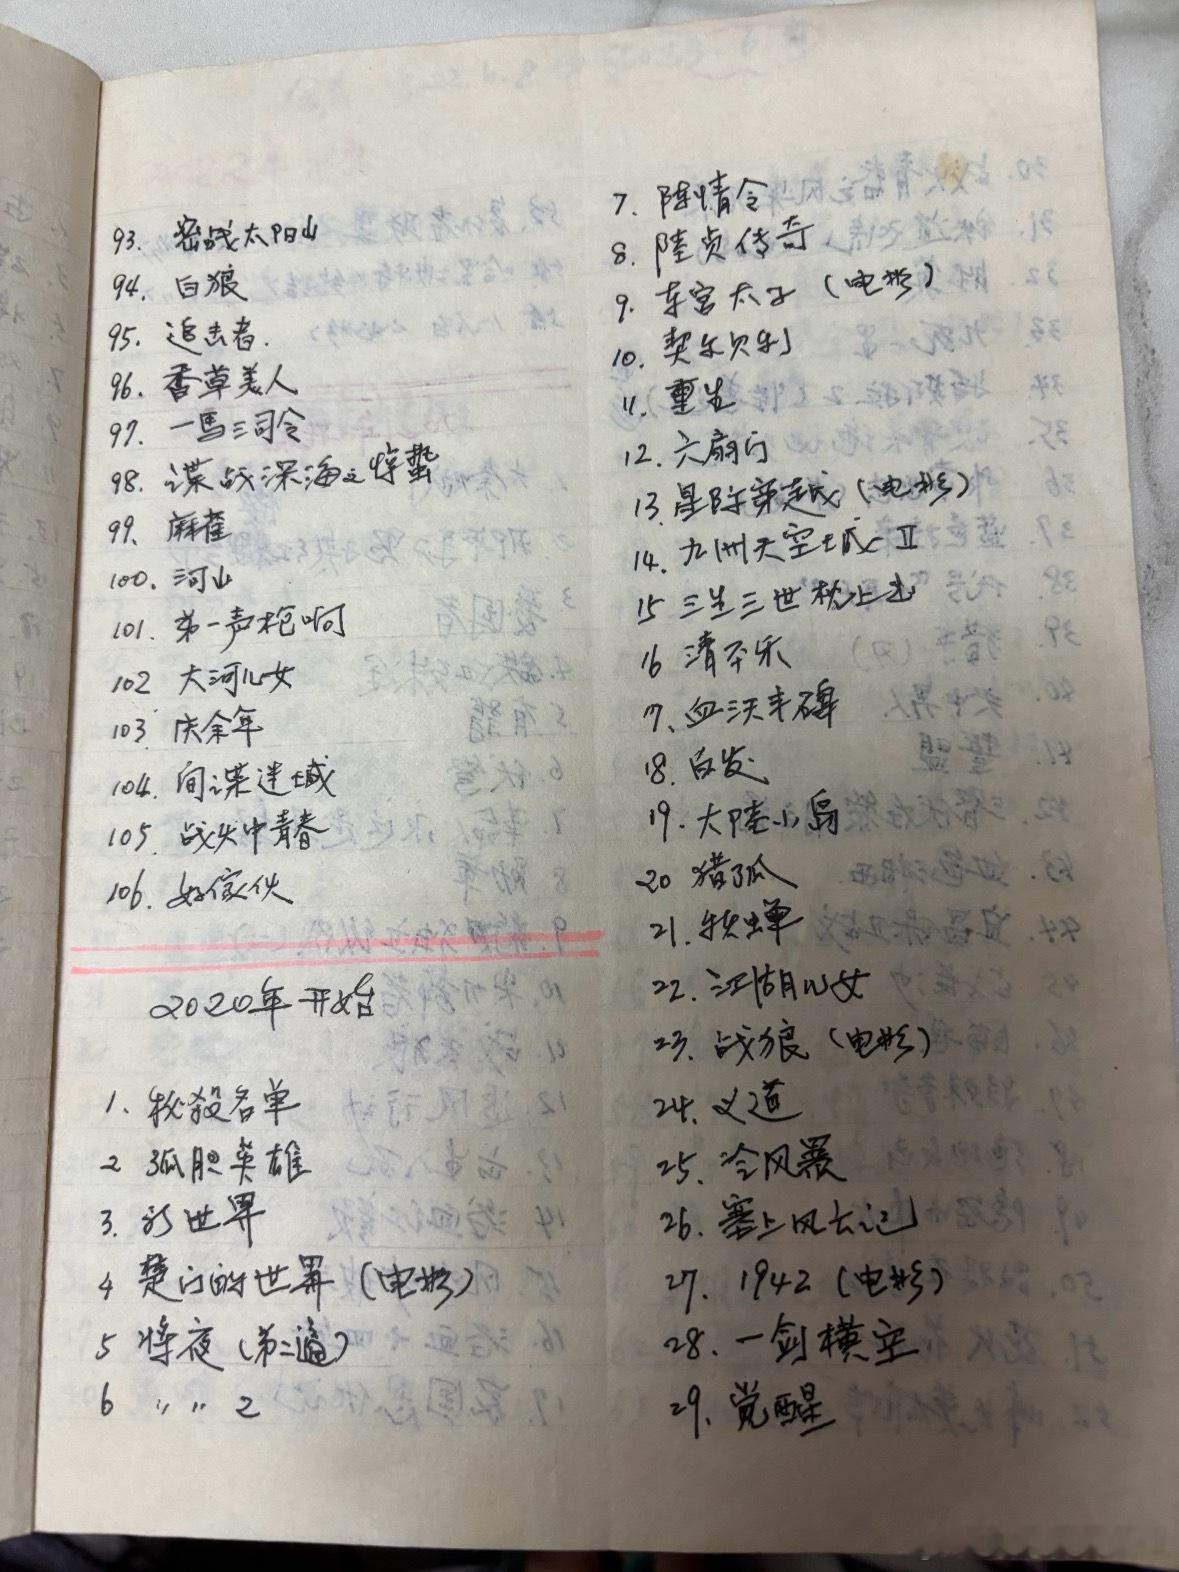 93. 密战太阳山
94. 白狼
95. 追击者.
96. 香草美人
97. 一馬三司令
98. 谍战深海之惊蛰
99. 麻雀
100. 河山
101. 第一声枪响
102 大河儿女
103. 庆余年
104. 间谍迷城
105. 战火中青春
106. 好傢伙
2020年开始
1. 秘殺名单
2 孤胆英雄
3. 新世界
4 楚门的世界（电影）
5 将夜（第二遍）
6 〃 〃 2
7. 陈情令
8. 陸贞传奇
9. 东宫太子（电影）
10. 契尔贝利
11. 重生
12. 六扇门
13. 星际穿越（电影）
14. 九州天空城 II
15 三生三世枕上书
16 清平乐
17. 血沃丰碑
18. 白发
19. 大陸小岛
20 猎狐
21. 秋蝉
22. 江湖儿女
23. 战狼（电影）
24. 义道
25. 冷风暴
26. 塞上风云记
27. 1942（电影）
28. 一剑横空
29. 觉醒